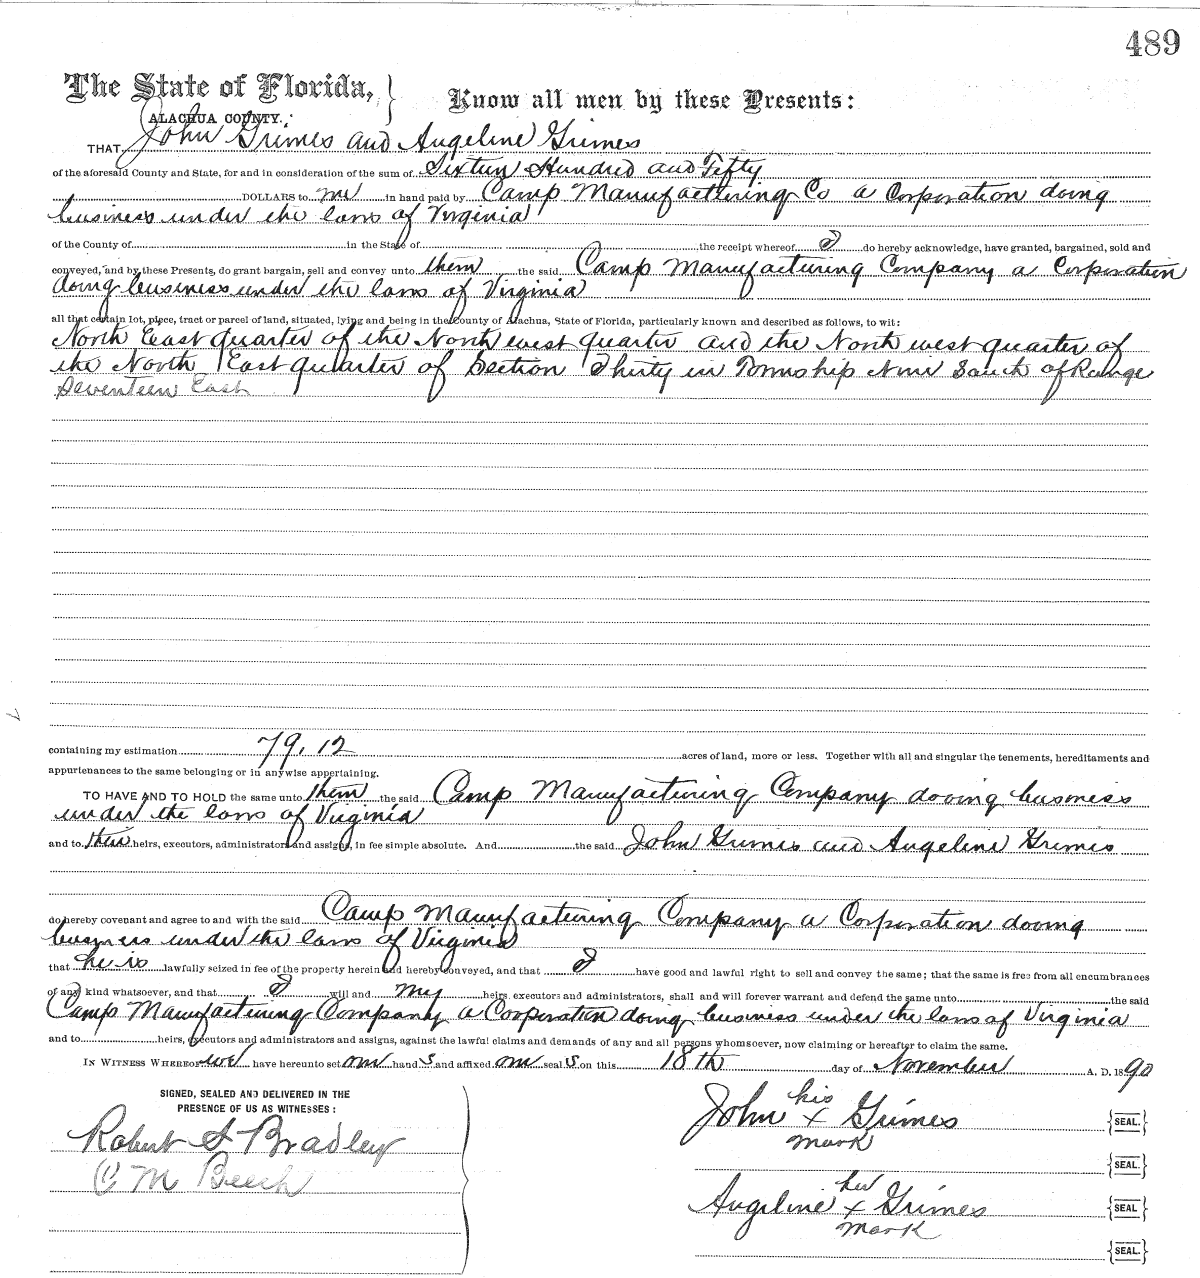 489
The State of Florida, } Know all men by these Presents:
ALACHUA COUNTY.
THAT John Grimes and Angeline Grimes
of the aforesaid County and State, for and in consideration of the sum of Sixteen Hundred and Fifty
DOLLARS to me in hand paid by Camp Manufacturing Co a Corporation doing
business under the laws of Virginia
of the County of in the State of the receipt whereof I do hereby acknowledge, have granted, bargained, sold and
conveyed, and by these Presents, do grant bargain, sell and convey unto them the said Camp Manufacturing Company a Corporation
doing business under the laws of Virginia
all that certain lot, piece, tract or parcel of land, situated, lying and being in the County of Alachua, State of Florida, particularly known and described as follows, to wit:
North East quarter of the North west quarter and the North west quarter of
the North East quarter of Section Thirty in Township Nine South of Range
Seventeen East
containing my estimation 79.12 acres of land, more or less. Together with all and singular the tenements, hereditaments and
appurtenances to the same belonging or in anywise appertaining.
TO HAVE AND TO HOLD the same unto them the said Camp Manufacturing Company dooing business
under the laws of Virginia
and to their heirs, executors, administrators and assigns, in fee simple absolute. And the said John Grimes and Angeline Grimes
do hereby covenant and agree to and with the said Camp Manufacturing Company a Corporation dooing
business under the laws of Virginia
that he is lawfully seized in fee of the property herein and hereby conveyed, and that I have good and lawful right to sell and convey the same; that the same is free from all encumbrances
of any kind whatsoever, and that I will and my heirs, executors and administrators, shall and will forever warrant and defend the same unto the said
Camp Manufacturing Company a Corporation doing business under the laws of Virginia
and to heirs, executors and administrators and assigns, against the lawful claims and demands of any and all persons whomsoever, now claiming or hereafter to claim the same.
IN WITNESS WHEREOF we have hereunto set our hand s and affixed our seal s on this 18th day of November A. D. 1890
SIGNED, SEALED AND DELIVERED IN THE
PRESENCE OF US AS WITNESSES:
Robert S Bradley
C M Beech
his
John x Grimes {SEAL.}
mark
{SEAL.}
her
Angeline x Grimes {SEAL}
mark
{SEAL.}